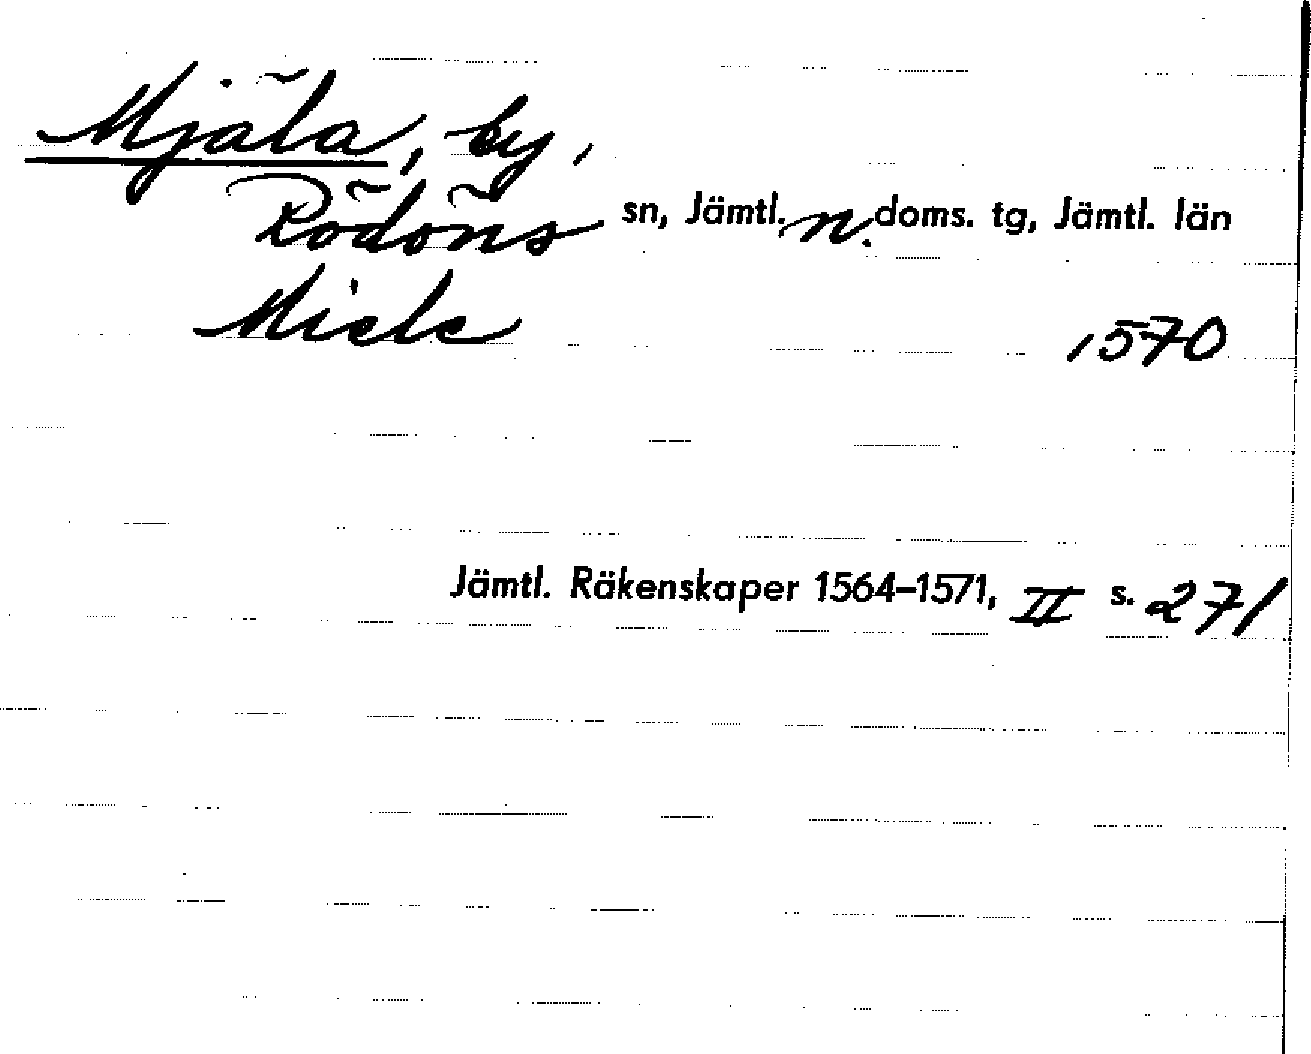 Mjäla, by,
Rödöns sn, Jämtl. n. doms. tg, Jämtl. län
Miele 1570
Jämtl. Räkenskaper 1564–1571, II s. 271